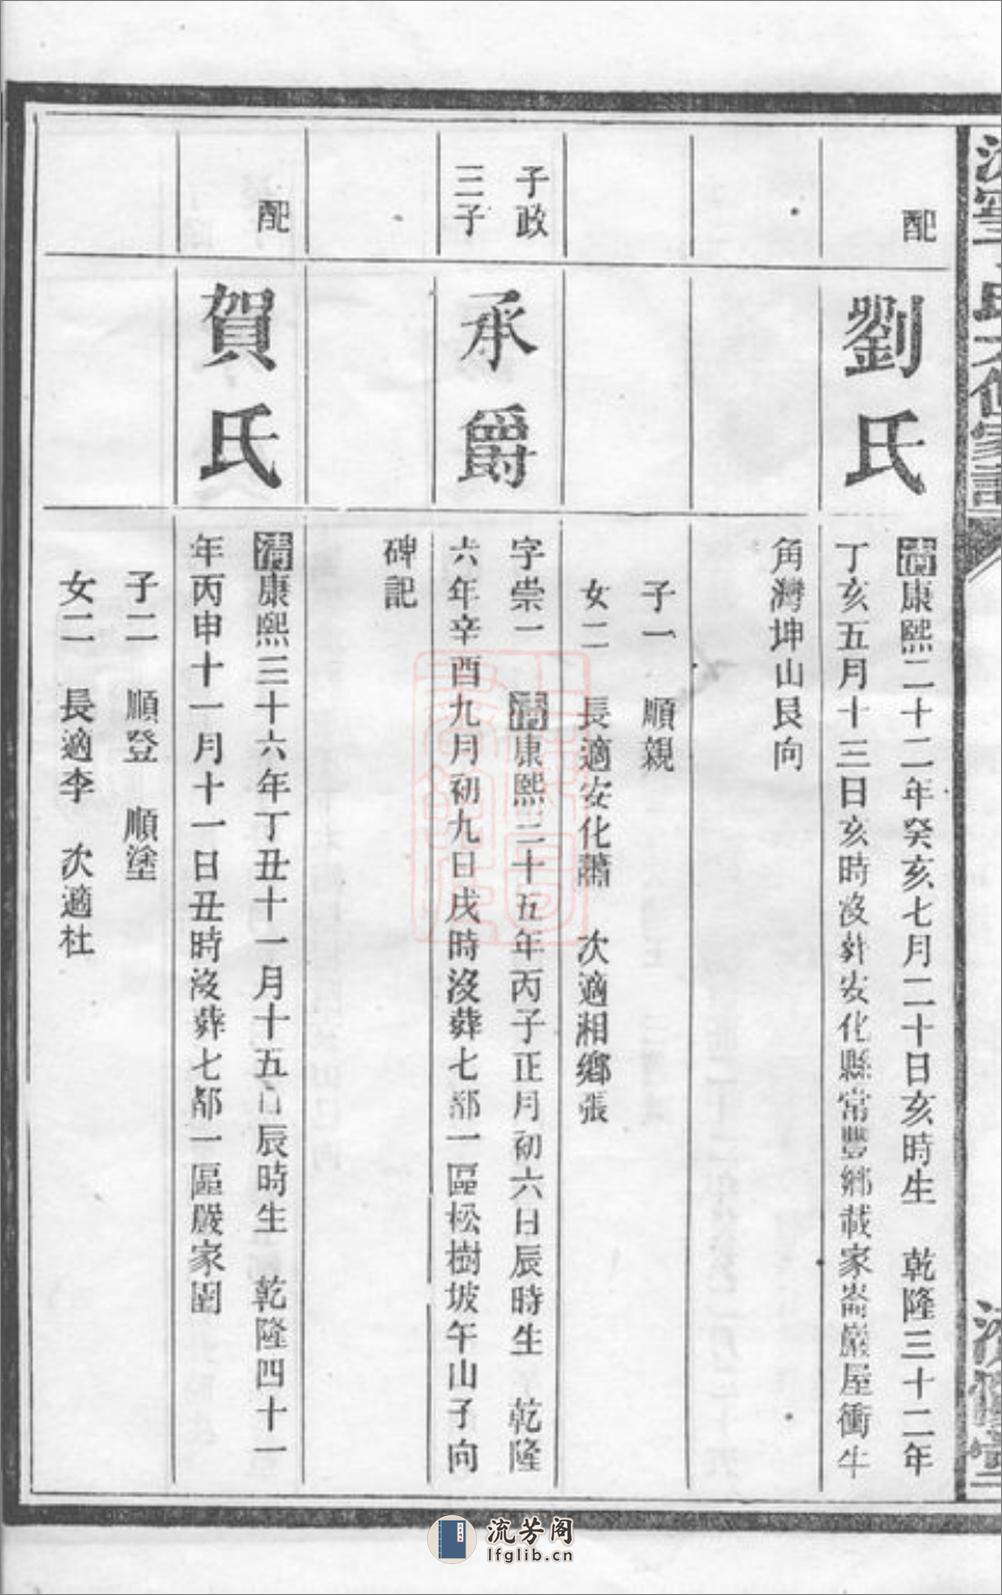 配
劉氏
清康熙二十二年癸亥七月二十日亥時生　乾隆三十二年
丁亥五月十三日亥時沒葬安化縣常豐鄉載家崙巖屋衝牛
角灣坤山艮向
子一　順親
女二　長適安化蕭　次適湘鄉張
子政
三子
承爵
字崇一　清康熙三十五年丙子正月初六日辰時生　乾隆
六年辛酉九月初九日戌時沒葬七都一區松樹坡午山子向
碑記
配
賀氏
清康熙三十六年丁丑十一月十五日辰時生　乾隆四十一
年丙申十一月十一日丑時沒葬七都一區嚴家園
子二　順登　順塗
女二　長適李　次適杜
流芳阁
lfglib.cn